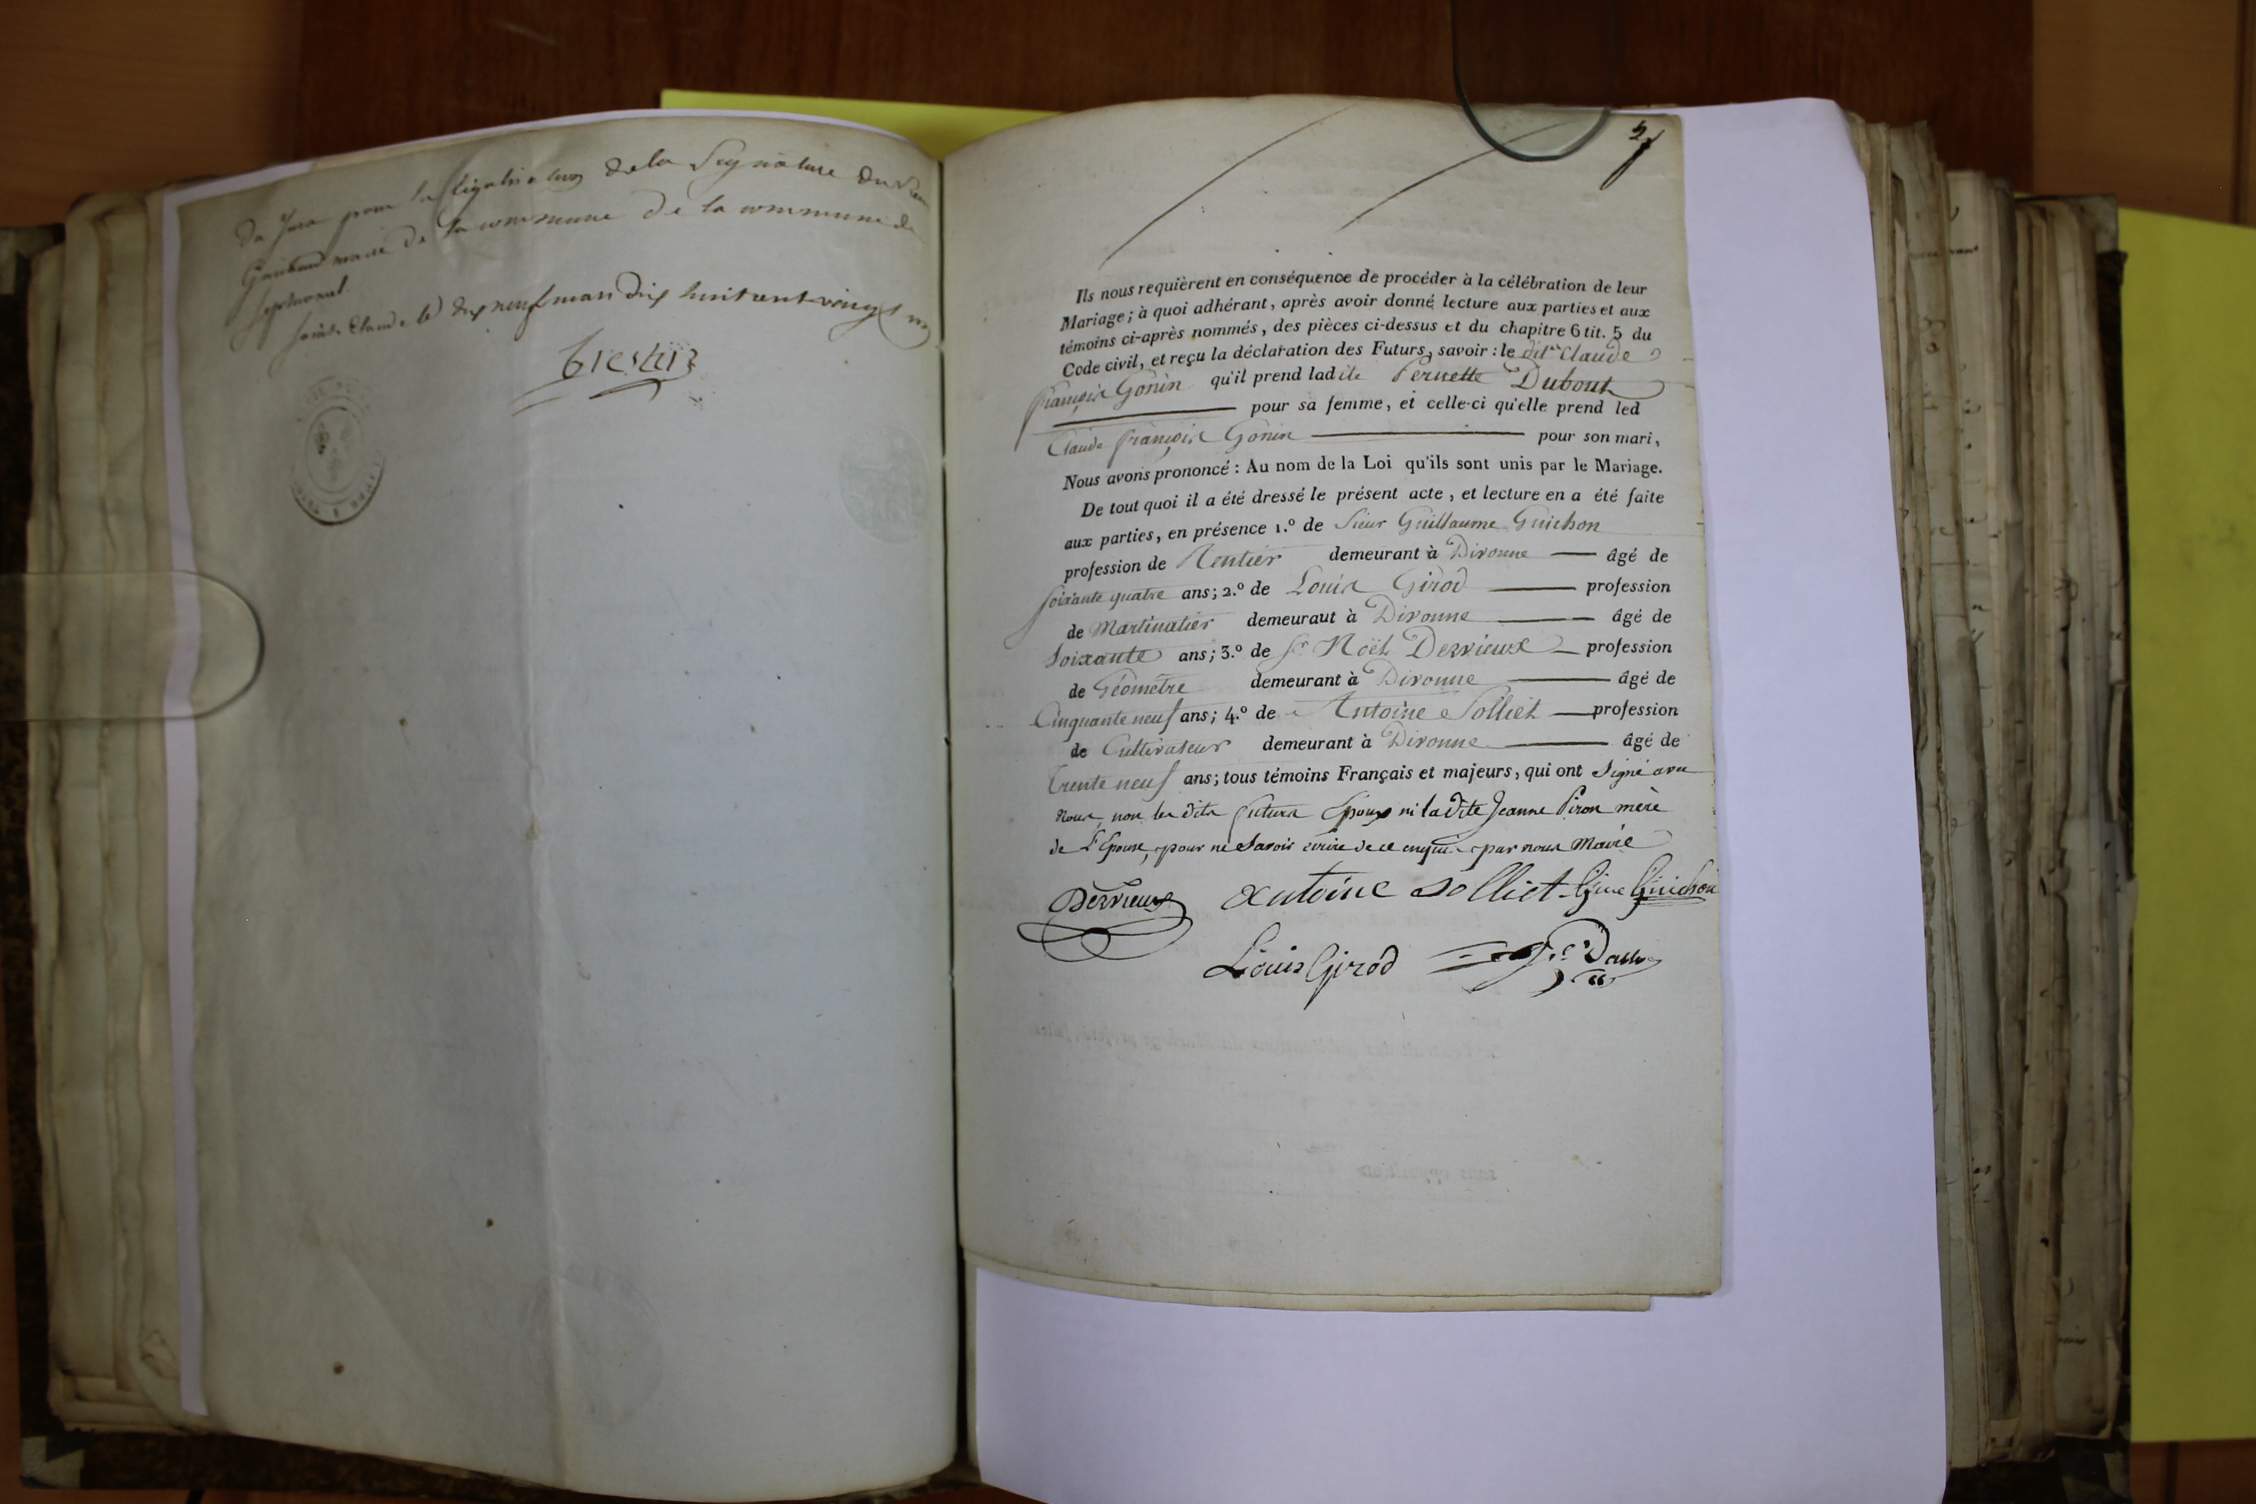 du Jura pour la légalisation de la Signature du Sieur
maire de la commune de la commune de
Septmoncel
Saint Claude le dix neuf mars dix huit cent vingt un
2
Ils nous requièrent en conséquence de procéder à la célébration de leur
Mariage; à quoi adhérant, après avoir donné lecture aux parties et aux
témoins ci-après nommés, des pièces ci-dessus et du chapitre 6 tit. 5 du
Code civil, et reçu la déclaration des Futurs, savoir : le dit Claude
françois Gonin qu'il prend ladite Pernette Dubout
pour sa femme, et celle-ci qu'elle prend led
Claude françois Gonin pour son mari,
Nous avons prononcé : Au nom de la Loi qu'ils sont unis par le Mariage.
De tout quoi il a été dressé le présent acte, et lecture en a été faite
aux parties, en présence 1.º de Sieur Guillaume Guichon
profession de Rentier demeurant à Divonne âgé de
soixante quatre ans; 2.º de Louis Girod profession
de Martinatier demeuraut à Divonne âgé de
Soixante ans; 3.º de Sr Noël Derrieux profession
de Géomètre demeurant à Divonne âgé de
Cinquante neuf ans; 4.º de Antoine Solliet profession
de Cultivateur demeurant à Divonne âgé de
trente neuf ans; tous témoins Français et majeurs, qui ont signé avec
Nous, non les dits futurs Epoux ni la dite Jeanne Piron mère
de l'Epouse, pour ne savoir écrire de ce enquis par nous Maire
Derrieux Antoine Solliet Gme Guichon
Louis Girod